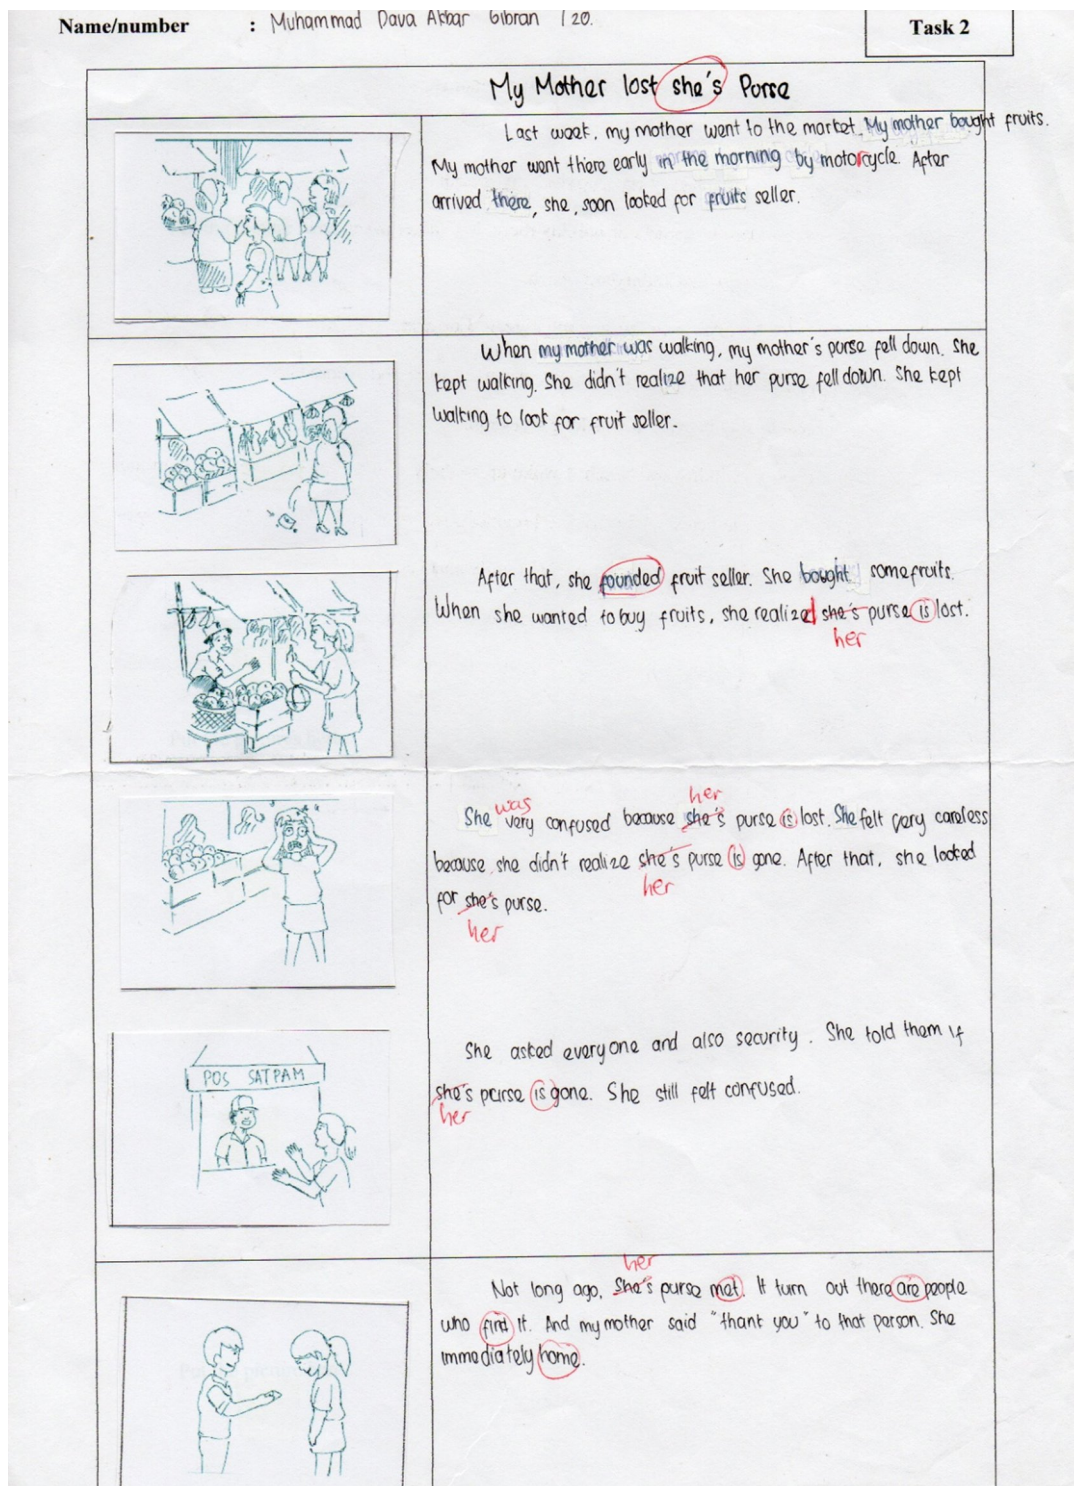 Name/number : Muhammad Dava Akbar Gibran / 20.
Task 2
My Mother lost she's Purse
Last week, my mother went to the market. My mother bought fruits.
My mother went there early in the morning by motorcycle. After
arrived there, she, soon looked for fruits seller.
When my mother was walking, my mother's purse fell down. She
kept walking. She didn't realize that her purse fell down. She kept
walking to look for fruit seller.
After that, she founded fruit seller. She bought some fruits.
When she wanted to buy fruits, she realized she's purse is lost.
her
was her
She very confused because she's purse is lost. She felt very careless
because she didn't realize she's purse is gone. After that, she looked
her
for she's purse.
her
POS SATPAM
She asked everyone and also security. She told them if
she's purse is gone. She still felt confused.
her
her
Not long ago, she's purse met. It turn out there are people
who find it. And my mother said "thank you" to that person. She
immediately home.